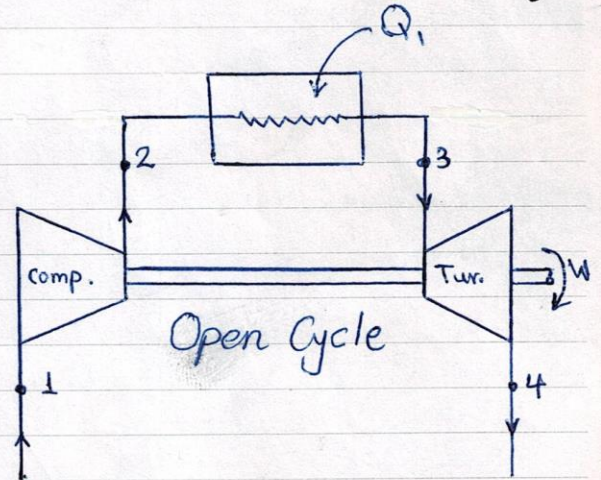 Q1
2
3
Comp.
Tur.
W
Open Cycle
1
4